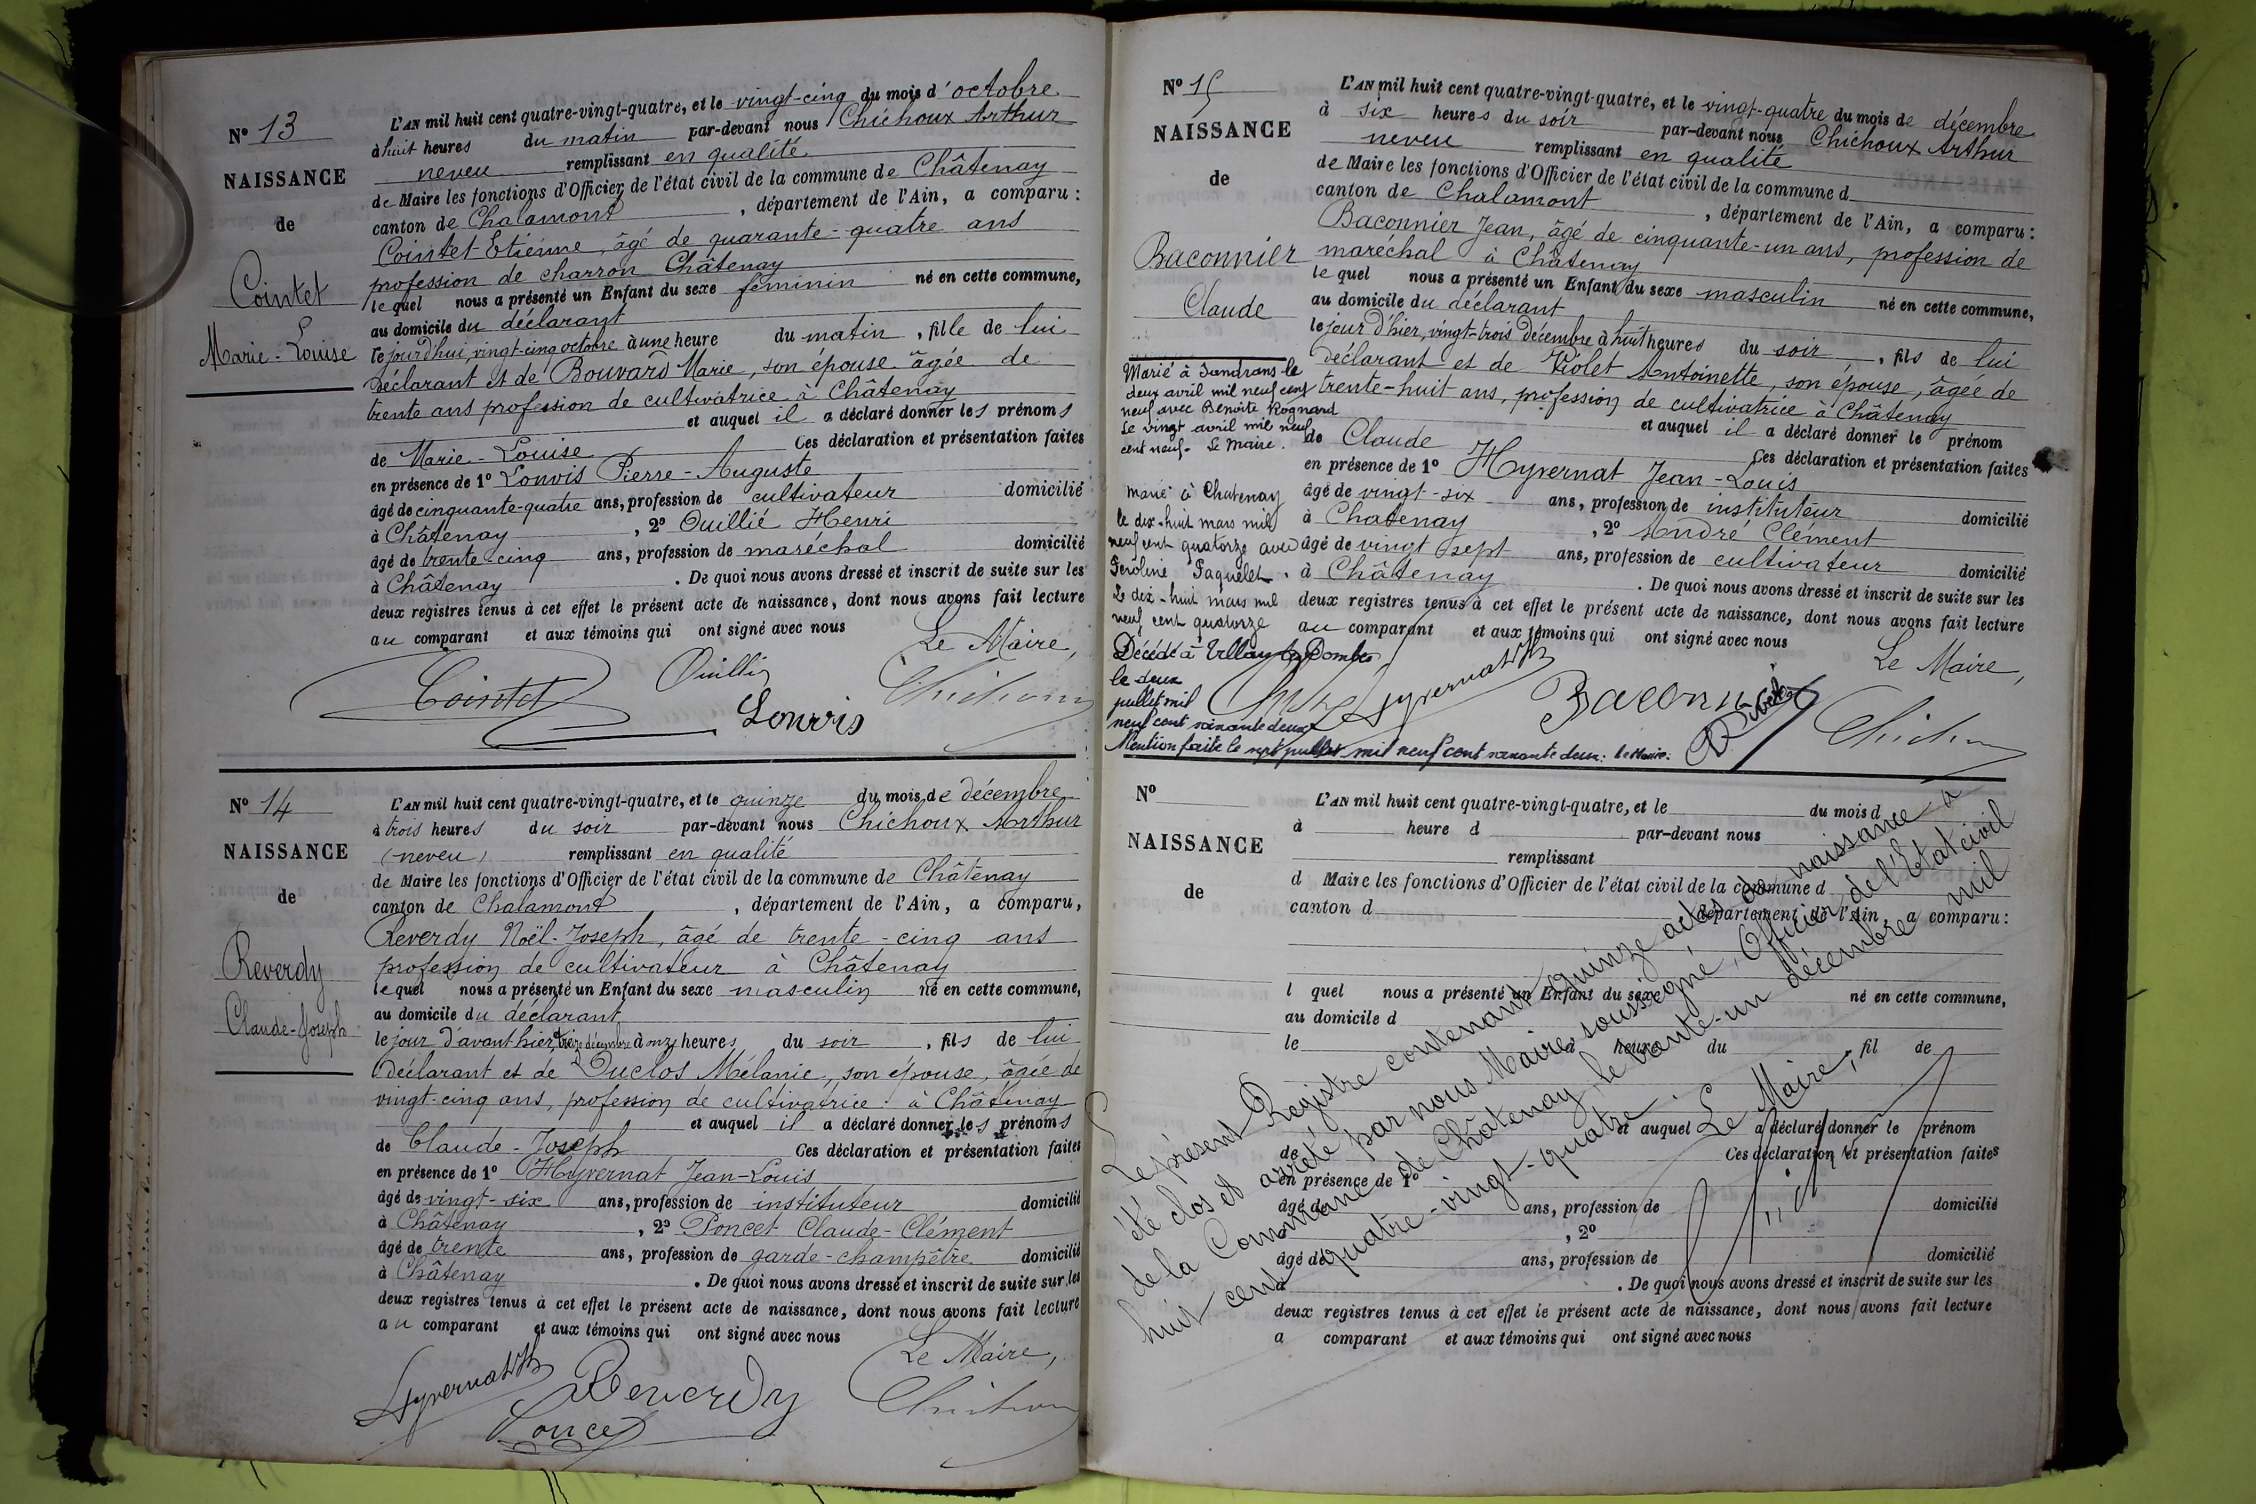 N° 13
NAISSANCE
de
Cointet
Marie-Louise
L'AN mil huit cent quatre-vingt-quatre, et le vingt-cinq du mois d'octobre
à huit heures du matin par-devant nous Chichoux Arthur
neveu remplissant en qualité
de Maire les fonctions d'Officier de l'état civil de la commune de Châtenay
canton de Chalamont, département de l'Ain, a comparu :
Cointet Etienne, âgé de quarante-quatre ans
profession de charron Châtenay
lequel nous a présenté un Enfant du sexe féminin né en cette commune,
au domicile du déclarant
le jourd'hui, vingt-cinq octobre à une heure du matin, fille de lui
déclarant et de Bouvard Marie, son épouse âgée de
trente ans profession de cultivatrice à Châtenay
et auquel il a déclaré donner les prénoms
de Marie-Louise Ces déclaration et présentation faites
en présence de 1° Louvis Pierre-Auguste
âgé de cinquante-quatre ans, profession de cultivateur domicilié
à Châtenay, 2° Ouillié Henri
âgé de trente-cinq ans, profession de maréchal domicilié
à Châtenay. De quoi nous avons dressé et inscrit de suite sur les
deux registres tenus à cet effet le présent acte de naissance, dont nous avons fait lecture
au comparant et aux témoins qui ont signé avec nous
Le Maire,
Cointet
Louvis
N° 14
NAISSANCE
de
Reverdy
Claude-Joseph
L'AN mil huit cent quatre-vingt-quatre, et le quinze du mois de décembre
à trois heures du soir par-devant nous Chichoux Arthur
(neveu) remplissant en qualité
de Maire les fonctions d'Officier de l'état civil de la commune de Châtenay
canton de Chalamont, département de l'Ain, a comparu,
Reverdy Noël-Joseph, âgé de trente-cinq ans
profession de cultivateur à Châtenay
lequel nous a présenté un Enfant du sexe masculin né en cette commune,
au domicile du déclarant
le jour d'avant hier, treize décembre à onze heures du soir, fils de lui
déclarant et de Duclos Mélanie, son épouse, âgée de
vingt-cinq ans, profession de cultivatrice à Châtenay
et auquel il a déclaré donner les prénoms
de Claude-Joseph Ces déclaration et présentation faites
en présence de 1° Hyvernat Jean-Louis
âgé de vingt-six ans, profession de instituteur domicilié
à Châtenay, 2° Poncet Claude-Clément
âgé de trente ans, profession de garde-champêtre domicilié
à Châtenay. De quoi nous avons dressé et inscrit de suite sur les
deux registres tenus à cet effet le présent acte de naissance, dont nous avons fait lecture
au comparant et aux témoins qui ont signé avec nous
Le Maire,
Hyvernat Reverdy
Poncet
N° 15
NAISSANCE
de
Baconnier
Claude
Marié à Sandrans le
deux avril mil neuf cent
neuf avec Benoite Rognard
Le vingt avril mil neuf
cent neuf. Le Maire.
marié à Chatenay
le dix-huit mars mil
neuf cent quatorze avec
Paquelet.
Le dix-huit mars mil
neuf cent quatorze
Décédé à Villars les Dombes
le deux
juillet mil
neuf cent soixante deux
Mention faite le sept juillet mil neuf cent soixante deux. Le Maire.
L'AN mil huit cent quatre-vingt-quatre, et le vingt-quatre du mois de décembre
à six heures du soir par-devant nous Chichoux Arthur
neveu remplissant en qualité
de Maire les fonctions d'Officier de l'état civil de la commune d
canton de Chalamont, département de l'Ain, a comparu :
Baconnier Jean, âgé de cinquante-un ans, profession de
maréchal à Châtenay
lequel nous a présenté un Enfant du sexe masculin né en cette commune,
au domicile du déclarant
le jour d'hier, vingt-trois décembre à huit heures du soir, fils de lui
déclarant et de Violet Antoinette, son épouse, âgée de
trente-huit ans, profession de cultivatrice à Châtenay
et auquel il a déclaré donner le prénom
de Claude Ces déclaration et présentation faites
en présence de 1° Hyvernat Jean-Louis
âgé de vingt-six ans, profession de instituteur domicilié
à Chatenay, 2° André Clément
âgé de vingt sept ans, profession de cultivateur domicilié
à Châtenay. De quoi nous avons dressé et inscrit de suite sur les
deux registres tenus à cet effet le présent acte de naissance, dont nous avons fait lecture
au comparant et aux témoins qui ont signé avec nous
Le Maire,
Hyvernat
N°
NAISSANCE
de
L'AN mil huit cent quatre-vingt-quatre, et le du mois d
à heure d par-devant nous
remplissant
d Maire les fonctions d'Officier de l'état civil de la commune d
canton d département de l'Ain, a comparu :
l quel nous a présenté un Enfant du sexe né en cette commune,
au domicile d
le à heure du, fil de
et auquel a déclaré donner le prénom
de Ces déclaration et présentation faites
en présence de 1°
âgé de ans, profession de domicilié
, 2°
âgé de ans, profession de domicilié
à. De quoi nous avons dressé et inscrit de suite sur les
deux registres tenus à cet effet le présent acte de naissance, dont nous avons fait lecture
a comparant et aux témoins qui ont signé avec nous
Le présent Registre contenant quinze actes de naissance a
été clos et arrêté par nous Maire soussigné, Officier de l'Etat civil
de la Commune de Châtenay, le trente-un décembre mil
huit cent quatre-vingt-quatre.
Le Maire,